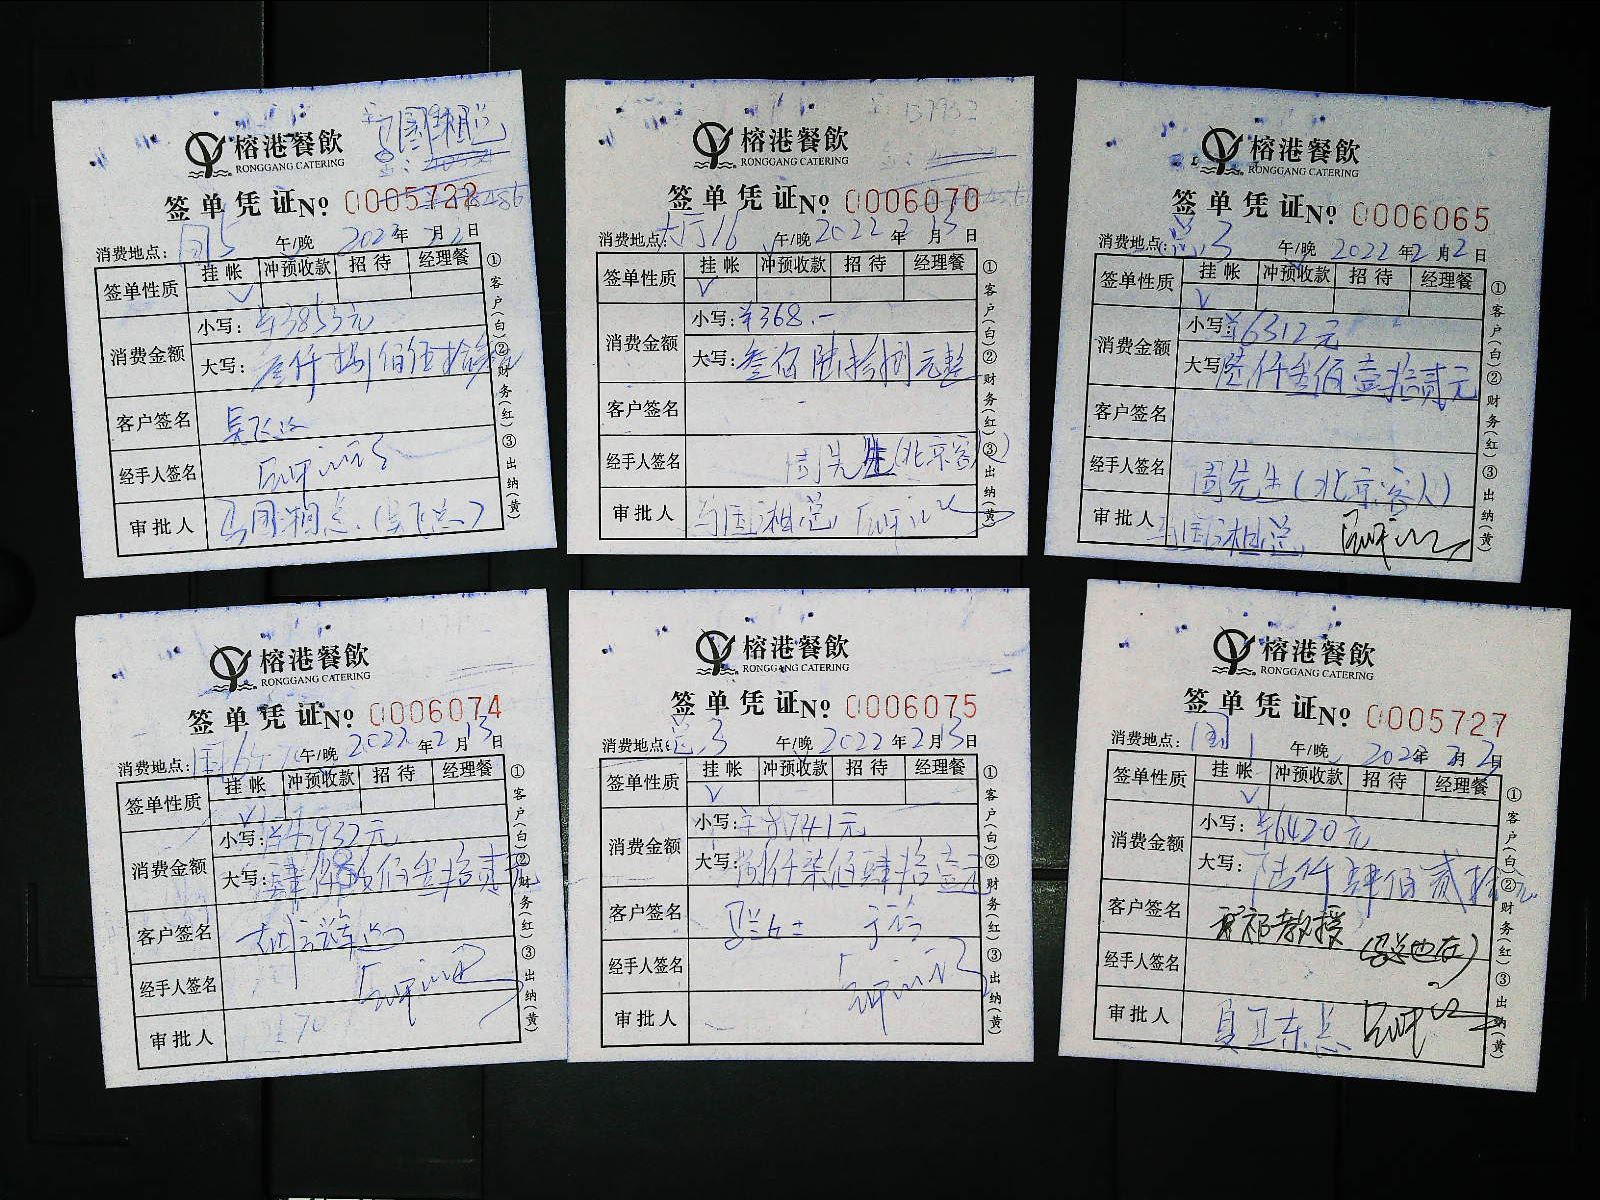 榕港餐飲
RONGGANG CATERING
签单凭证№ 0005722
消费地点: 午/晚 2022年2月2日
签单性质 挂帐 冲预收款 招待 经理餐
√
消费金额 小写: ¥3855元
大写: 叁仟捌佰伍拾
客户签名
经手人签名
审批人
①客户(白)②财务(红)③出纳(黄)
榕港餐飲
RONGGANG CATERING
签单凭证№ 0006070
消费地点: 大厅16 午/晚 2022年2月13日
签单性质 挂帐 冲预收款 招待 经理餐
√
消费金额 小写: ¥368.一
大写: 叁佰陆拾捌元整
客户签名
经手人签名 周先生(北京客人)
审批人 马国湘总
①客户(白)②财务(红)③出纳(黄)
榕港餐飲
RONGGANG CATERING
签单凭证№ 0006065
消费地点: 总3 午/晚 2022年2月2日
签单性质 挂帐 冲预收款 招待 经理餐
√
消费金额 小写: ¥6312元
大写: 陆仟叁佰壹拾贰元
客户签名
经手人签名 周先生(北京客人)
审批人 马国湘总
①客户(白)②财务(红)③出纳(黄)
榕港餐飲
RONGGANG CATERING
签单凭证№ 0006074
消费地点: 午/晚 2022年2月13日
签单性质 挂帐 冲预收款 招待 经理餐
√
消费金额 小写: ¥4932元
大写: 肆仟玖佰叁拾贰元
客户签名
经手人签名
审批人
①客户(白)②财务(红)③出纳(黄)
榕港餐飲
RONGGANG CATERING
签单凭证№ 0006075
消费地点: 总3 午/晚 2022年2月13日
签单性质 挂帐 冲预收款 招待 经理餐
√
消费金额 小写: ¥8741元
大写: 捌仟柒佰肆拾壹元
客户签名
经手人签名
审批人
①客户(白)②财务(红)③出纳(黄)
榕港餐飲
RONGGANG CATERING
签单凭证№ 0005727
消费地点: 午/晚 2022年2月2日
签单性质 挂帐 冲预收款 招待 经理餐
√
消费金额 小写: ¥6420元
大写: 陆仟肆佰贰拾元
客户签名 祁教授
经手人签名
审批人
①客户(白)②财务(红)③出纳(黄)